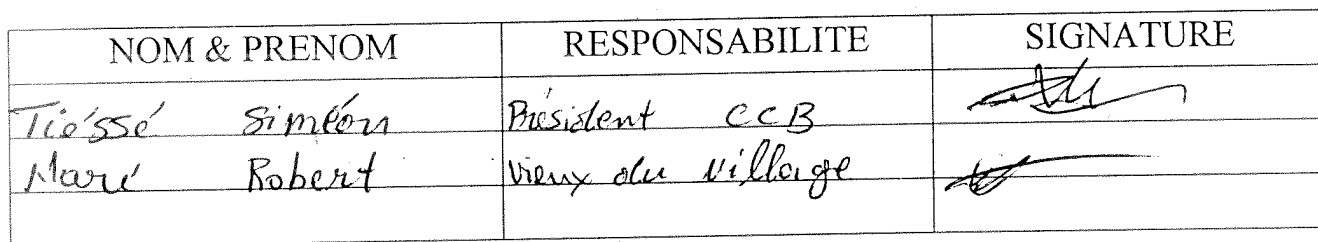 NOM & PRENOM RESPONSABILITE SIGNATURE
Tiéssé Siméon Président CCB
Maré Robert Vieux du village